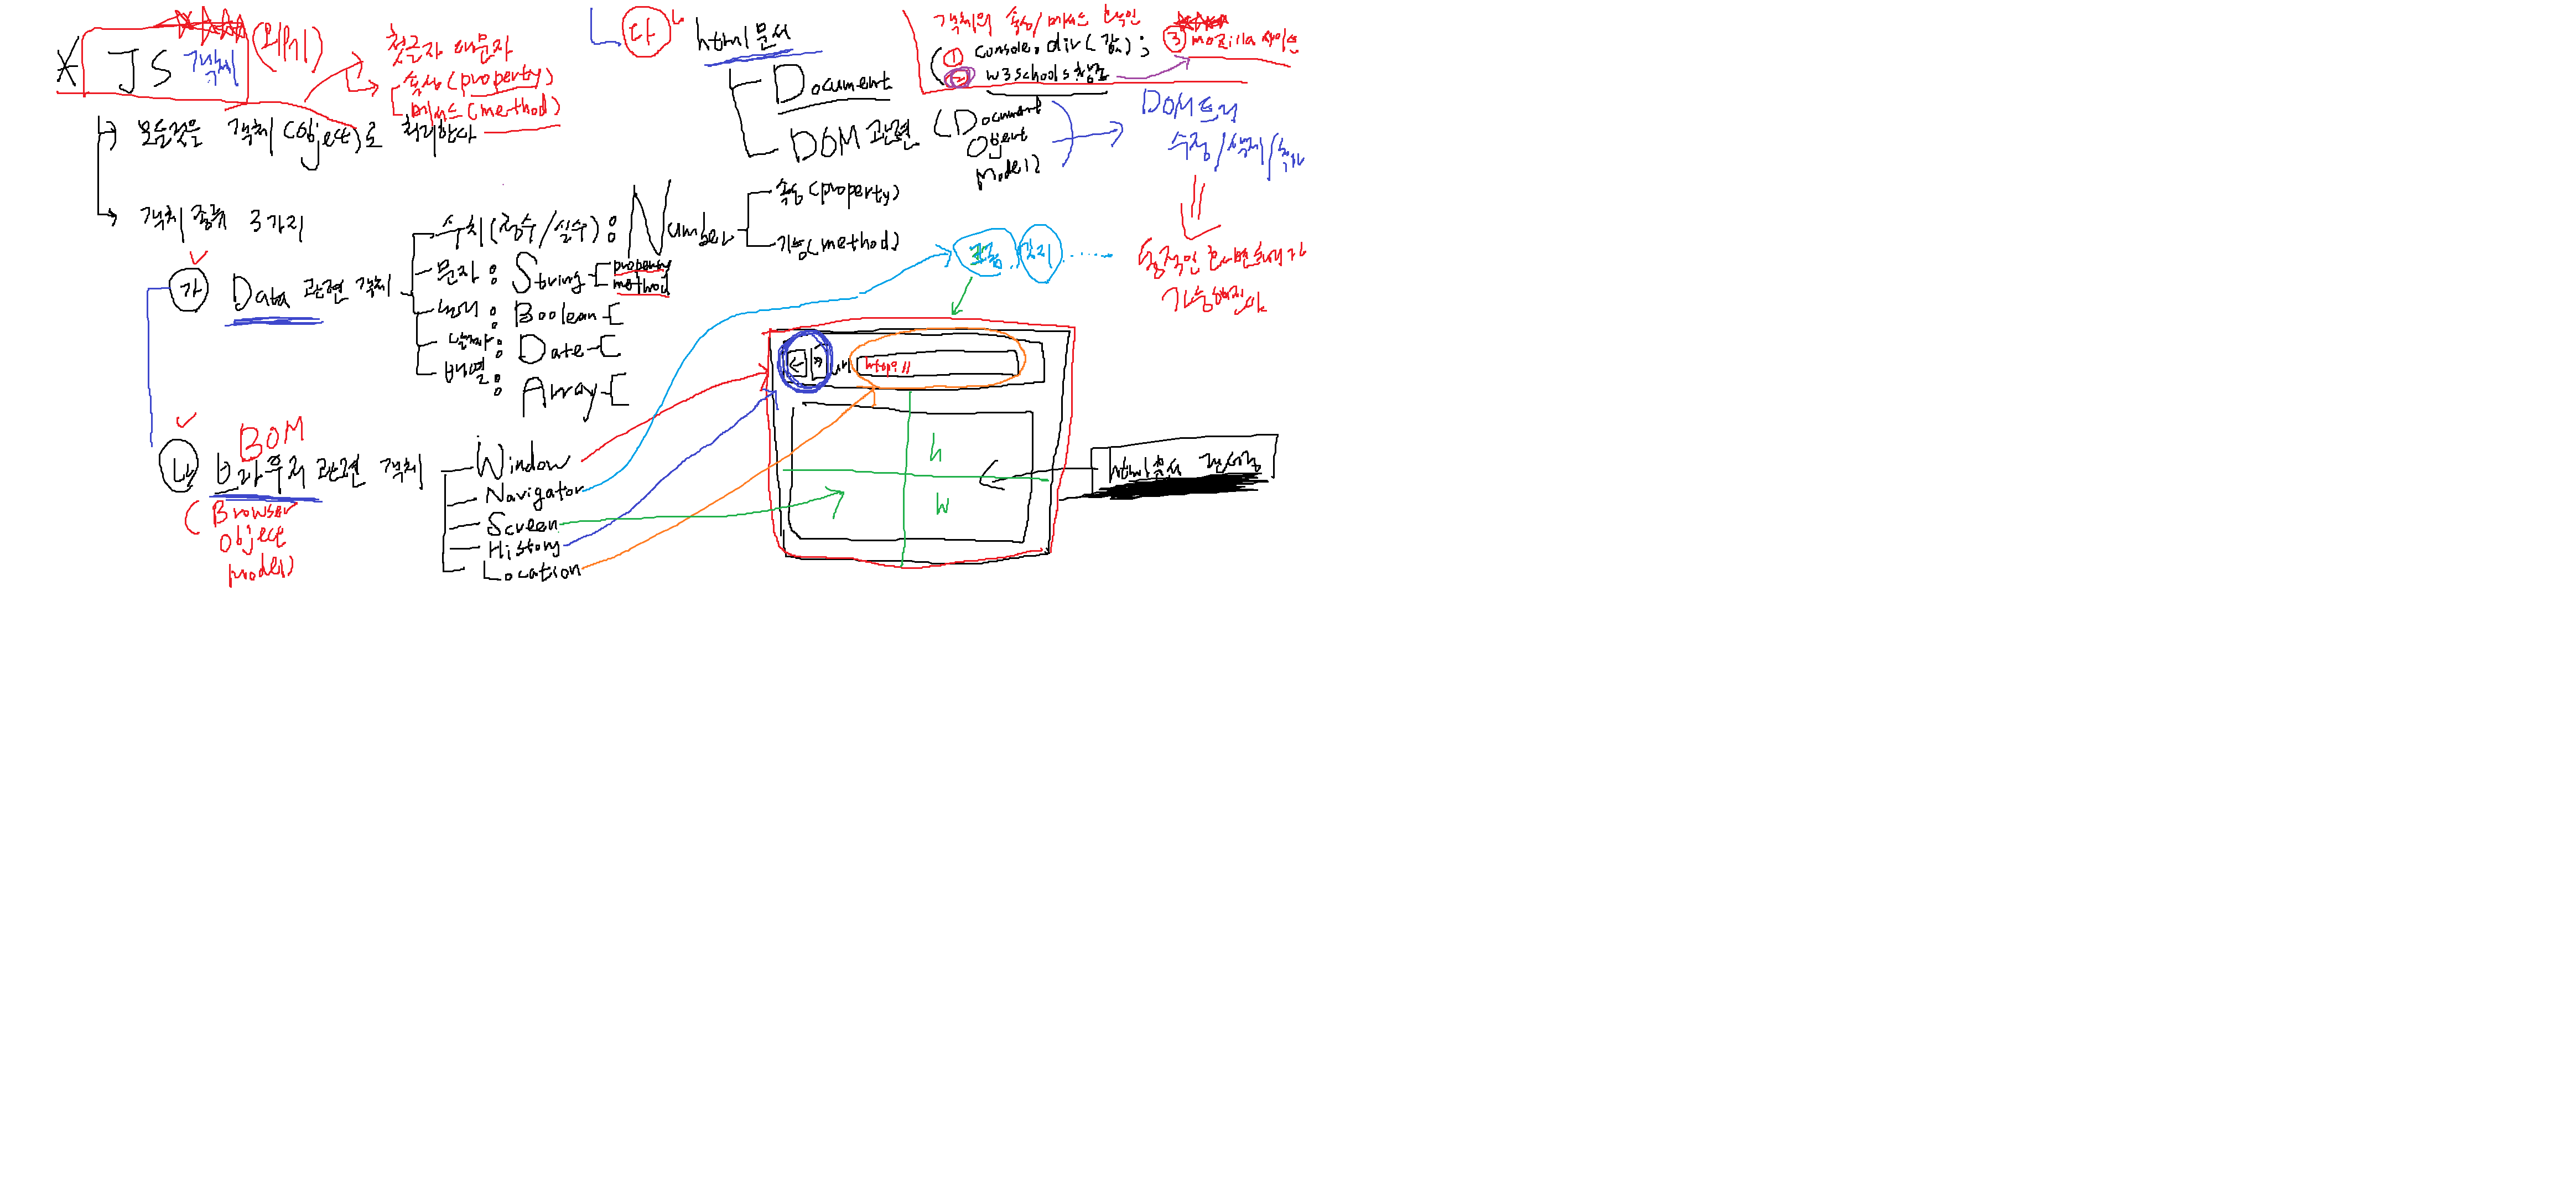 * JS 객체 (외부)
첫글자 대문자
속성(property)
메서드(method)
모든것은 객체(Object)로 처리한다
객체 종류 3가지
가 Data 관련 객체
수치(정수/실수) : Number
속성(property)
기능(method)
문자 : String
property
method
논리 : Boolean
날짜 : Date
배열 : Array
BOM
나 브라우저 관련 객체
(Browser
Object
Model)
Window
Navigator
Screen
History
Location
다 html문서
Document
DOM 관련 (Document
Object
Model)
객체의 속성/메서드 확인
① console.dir(값);
② w3schools참조
③ mozilla 사이트
DOM트리
수정/삭제/추가
동적인 화면처리가
가능해진다
크롬, 엣지 ......
url http://
h
w
html문서 렌더링